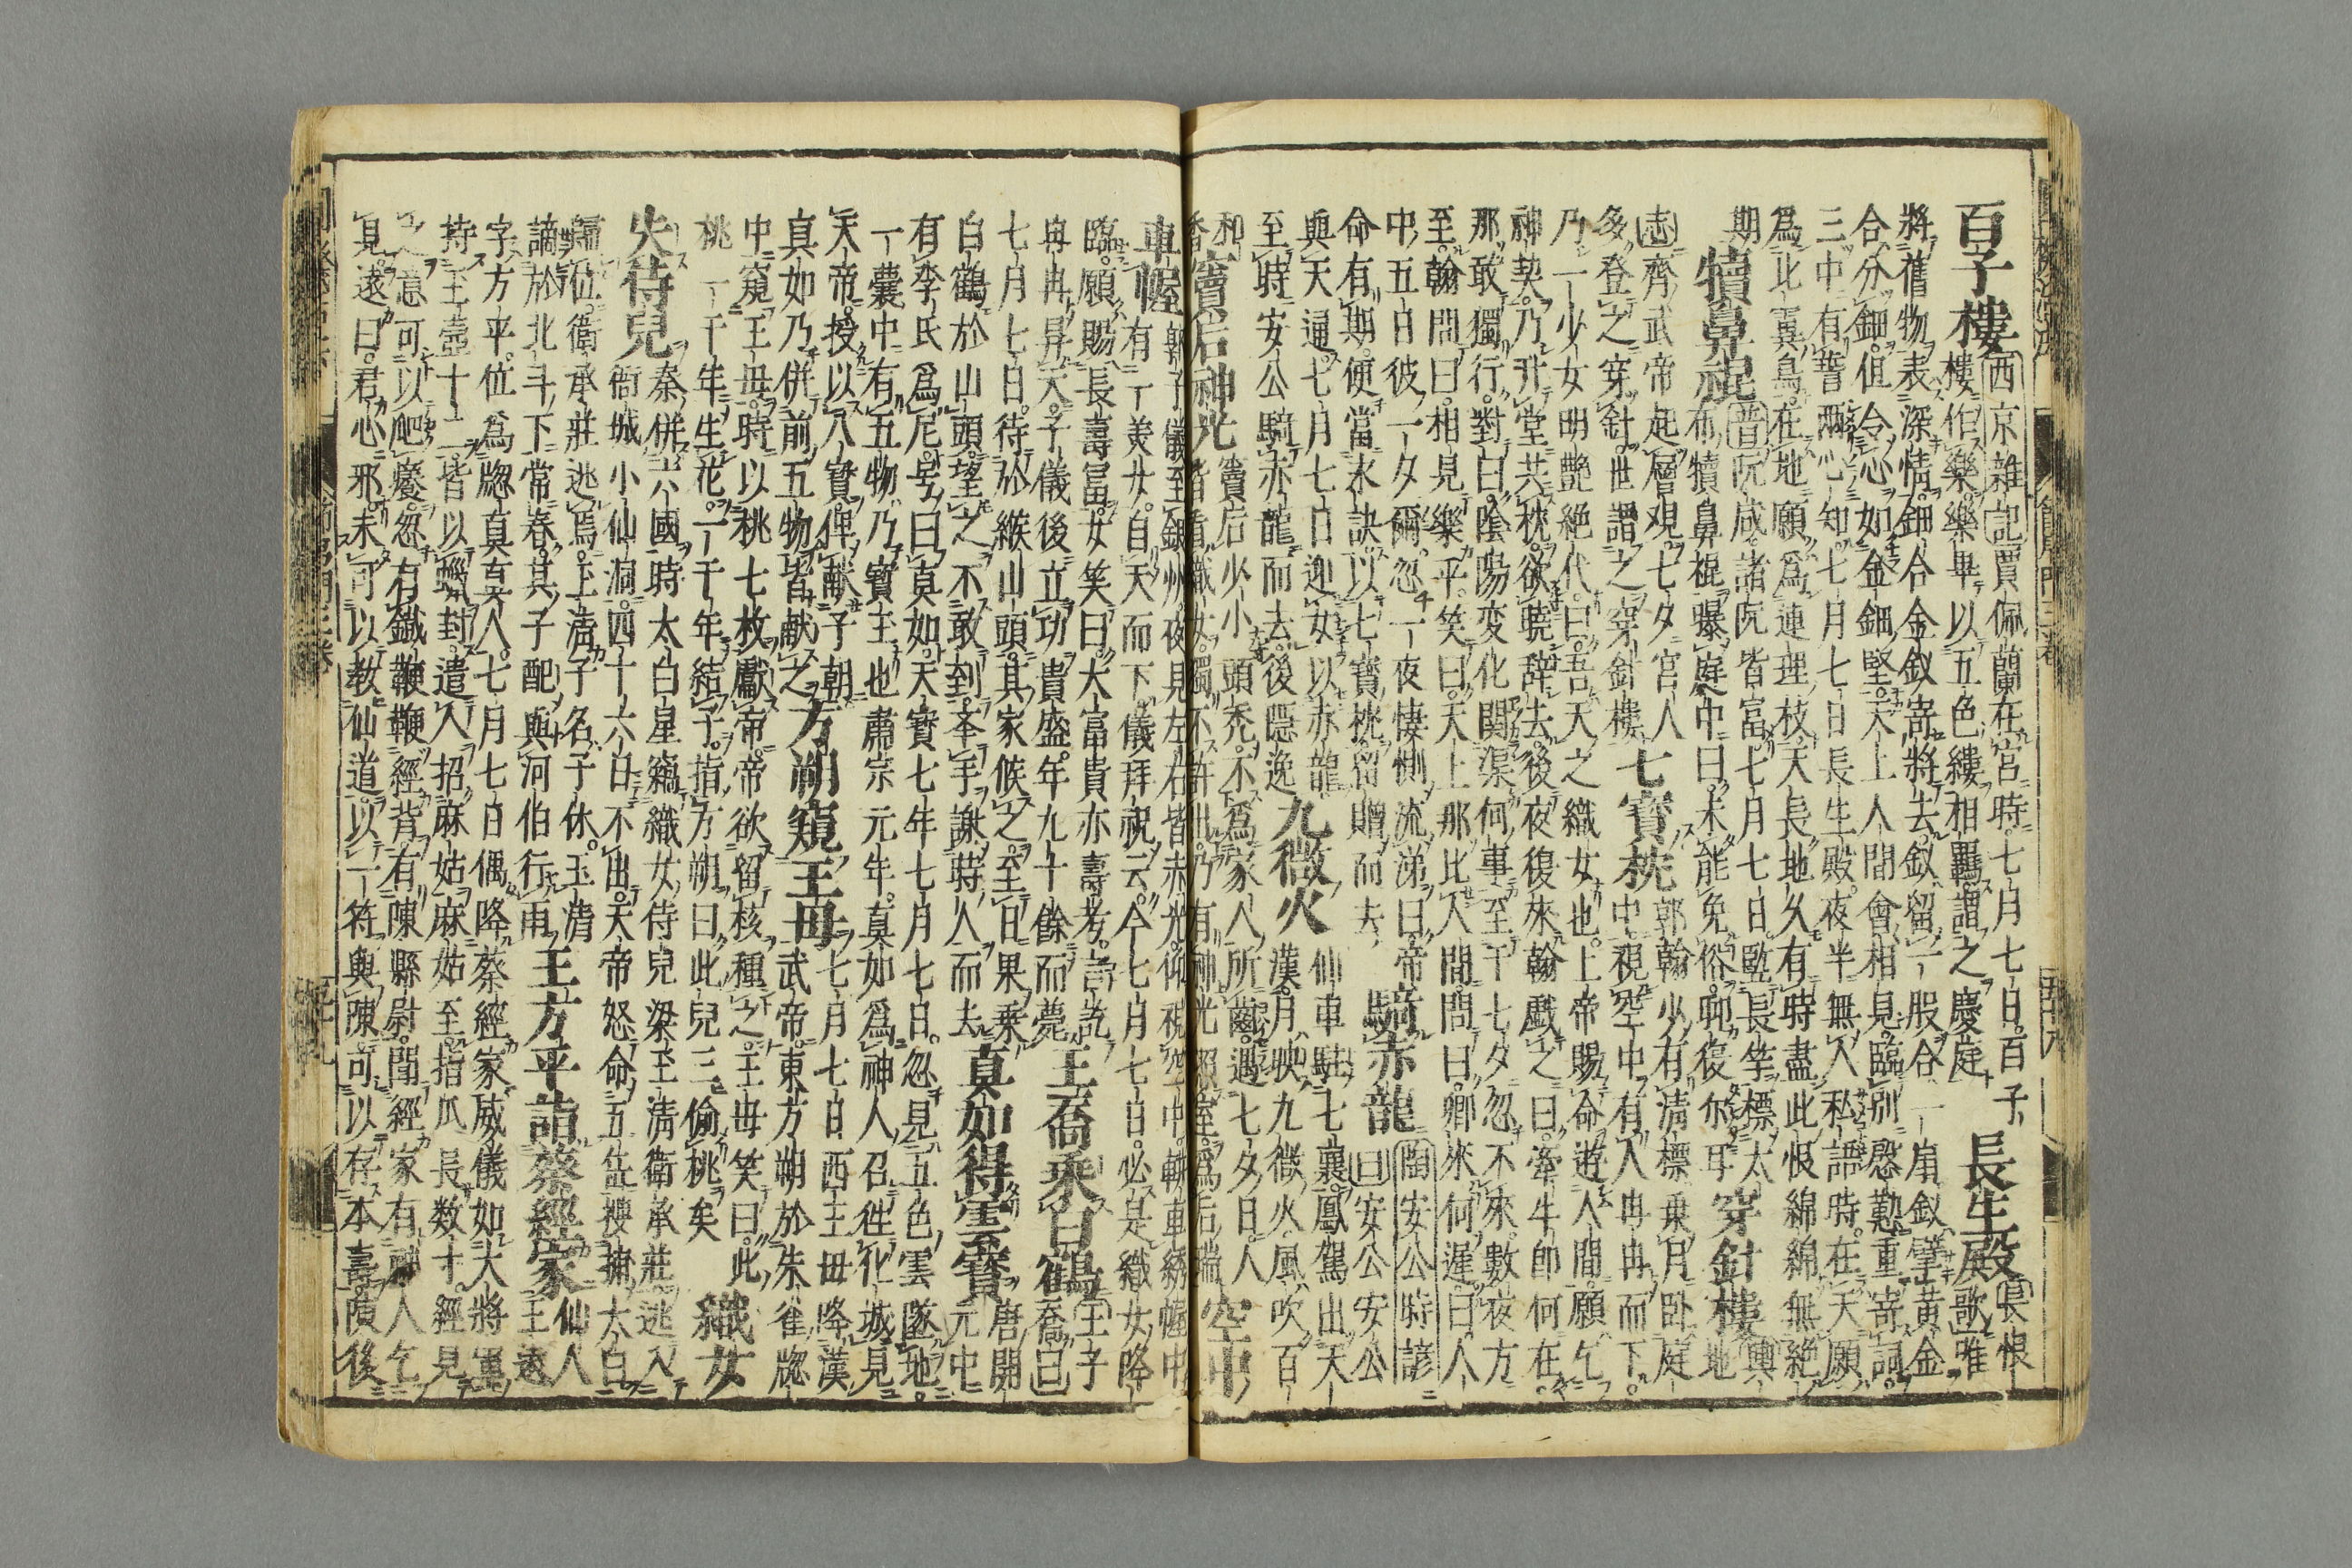 百子樓 西京雜記賈佩蘭在宮時七月七日百子
樓作樂樂畢以五色縷相羈謂之慶庭 長生殿 長恨歌唯
將舊物表深情鈿合金釵寄將去釵留一股合一扇釵擘黄金
合分鈿但令心如金鈿堅天上人間會相見臨別慇懃重寄詞
三中有誓兩心知七月七日長生殿夜半無人私語時在天願
爲比翼鳥在地願爲連理枝天長地久有時盡此恨綿綿無絶
期 犢鼻裩 晋阮咸諸阮皆富七月七日監長竿標大
布犢鼻裩曝庭中曰未能免俗聊復尓耳 穿針樓 輿地
志齊武帝起層観七夕宮人
多登之穿針世謂之穿針樓 七寳枕 郭翰少有清標乗月卧庭
中視空中有人冉冉而下
乃一少女明艷絶代曰吾天之織女也上帝賜命遊人間願乞
神契乃升堂共枕欲暁辞去後夜復來翰戯之曰牽牛郎何在
那敢獨行對曰陰陽変化関渠何事至于七夕忽不來數夜方
至翰問曰相見樂乎笑曰天上那比人間問曰卿來何遲曰人
中五日彼一夕爾忽一夜悽惻流涕曰帝
命有期便當永訣以七寳枕留贈而去 騎赤龍 陶安公時諺
曰安公安公
與天通七月七日迎女以赤龍
至時安公騎赤龍而去後隱逸 九微火 仙車駐七襄鳳駕出天
漢月映九微火風吹百
和香 竇后神光 竇后少小頭禿不爲家人所齒遇七夕日人
皆看織女獨不許出乃有神光照室爲后瑞 空中
車幄 郭子儀至銀州夜見左右皆赤光仰視空中軿車綉幄中
有一美女自天而下儀拜祝云今七月七日必是織女降
臨願賜長壽冨女笑曰大富貴亦壽考言訖
冉冉昇天子儀後立功貴盛年九十餘而薨 王喬乘白鶴 王子
喬曰
七月七日待於緱山頭其家候之至日果乘
白鶴於山頭望之不敢到擧手謝時人而去 真如得雲寳 唐開
元中
有李氏爲尼号曰真如天寳七年七月七日忽見五色雲墜地
一嚢中有五物乃寳玉也肅宗元年真如爲神人召徃化城見
天帝授以八寳俾献于朝
真如乃併前五物皆献之 方朔窺王母 七月七日西王母降漢
武帝東方朔於朱雀牎
中窺王母時以桃七枚獻帝帝欲留核種之王母笑曰此
桃一千年生花一千年結子指方朔曰此兒三偷桃矣 織女
失侍兒 秦併六國時太白星竊織女侍兒梁玉清衛承荘逃入
衙城小仙洞四十六日不出天帝怒命五岳搜捕太白
歸位衛承荘逃焉上清子名子休玉清
謫於北斗下常舂其子配與河伯行雨 王方平詣蔡經家 仙人
王遠
字方平位爲牎真真人七月七日偶降蔡經家威儀如大將軍
持玉壺十二皆以蠟封遣人招麻姑麻姑至指爪長数寸經見
之意可以爬癢忽有鐵鞭鞭經背有陳縣尉聞經家有神人乞
見遠曰君心邪未可以教仙道以一符與陳可以存本壽隕後